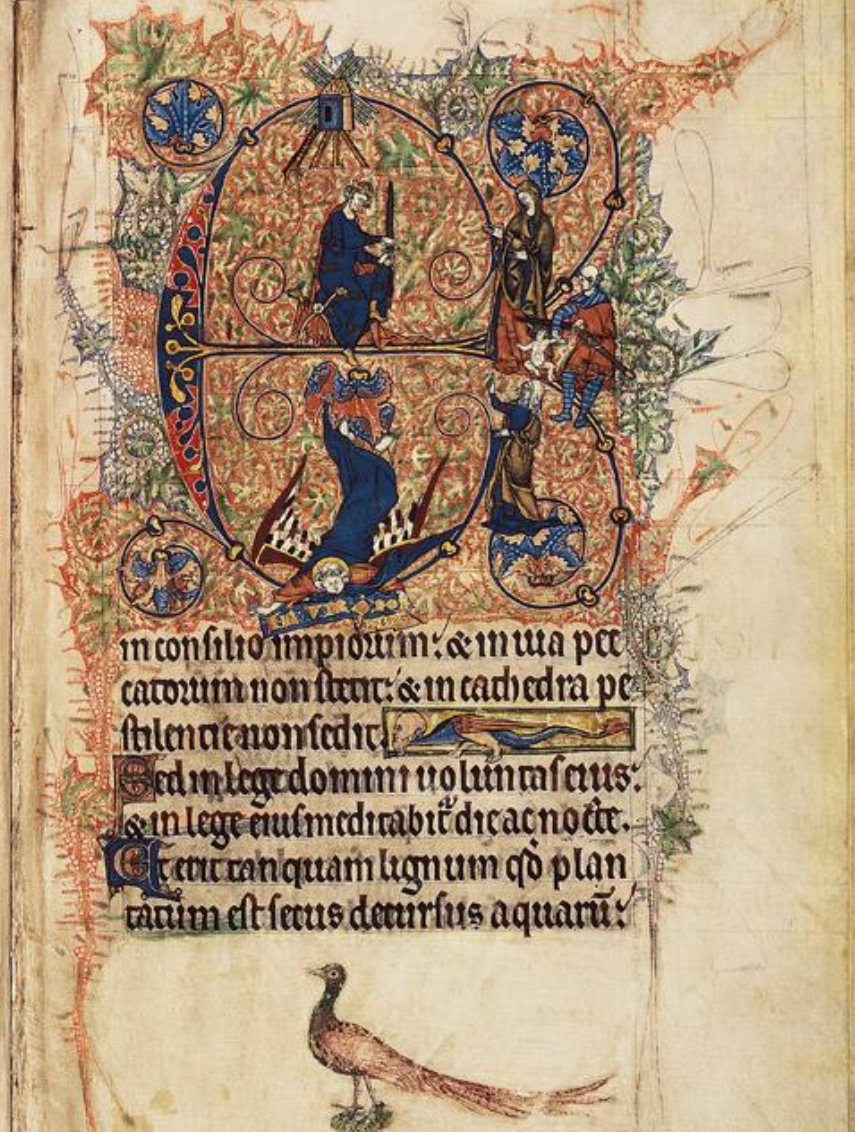 E
in consilio impiorum: & in uia pec
catorum non stetit: & in cathedra pe
stilencie non sedit.
Sed in lege domini uoluntas eius:
& in lege eius meditabit̃ die ac nocte.
Et erit tanquam lignum qd̃ plan
tatum est secus decursus aquarū: